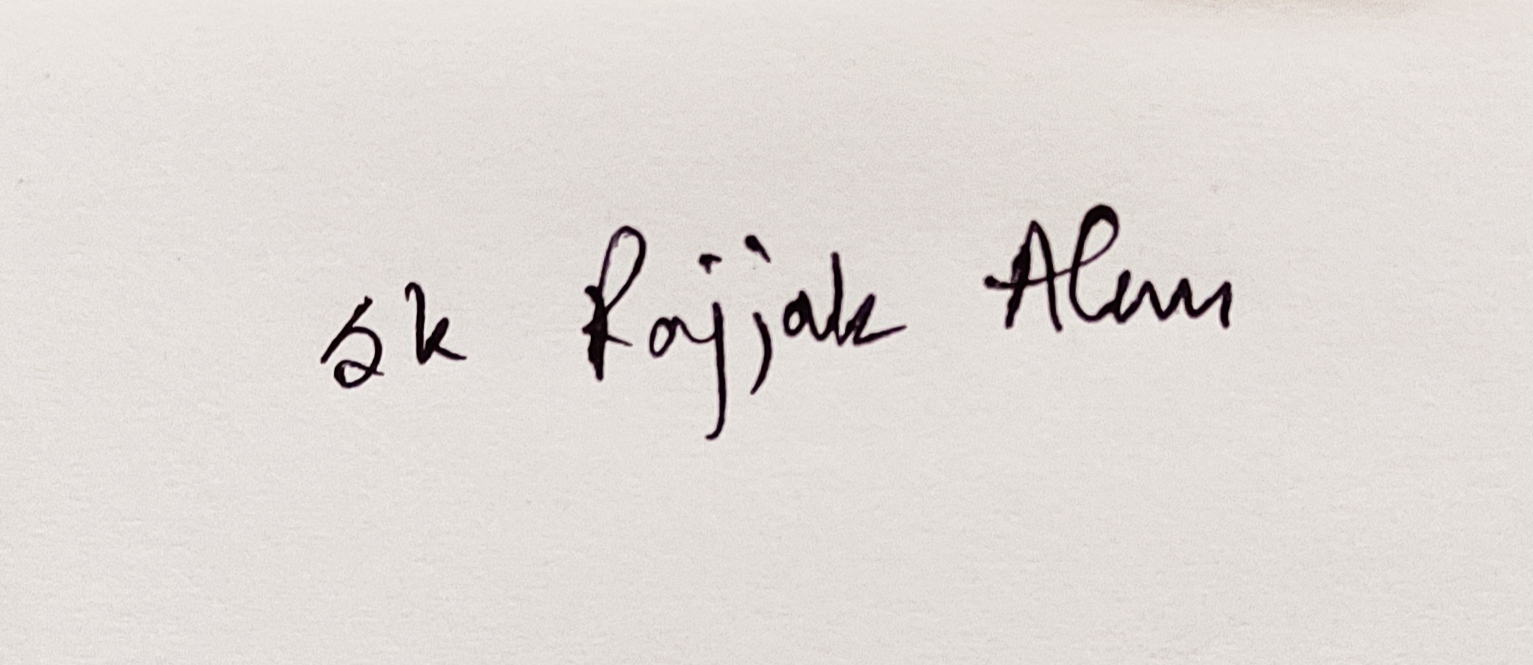 Sk Rajjak Alam